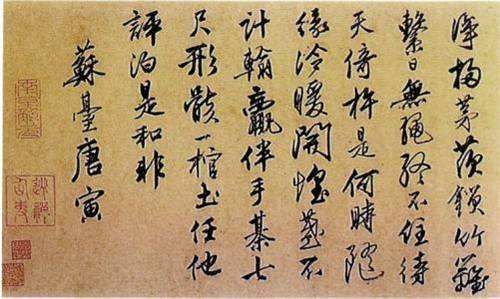 淨掃茅茨鎖竹籬
繫日無繩終不住待
天倚杵是何時隨
緣冷暖開盞不
計輸贏伴手棊七
尺形骸一棺土任他
評泊是和非
蘇臺唐寅